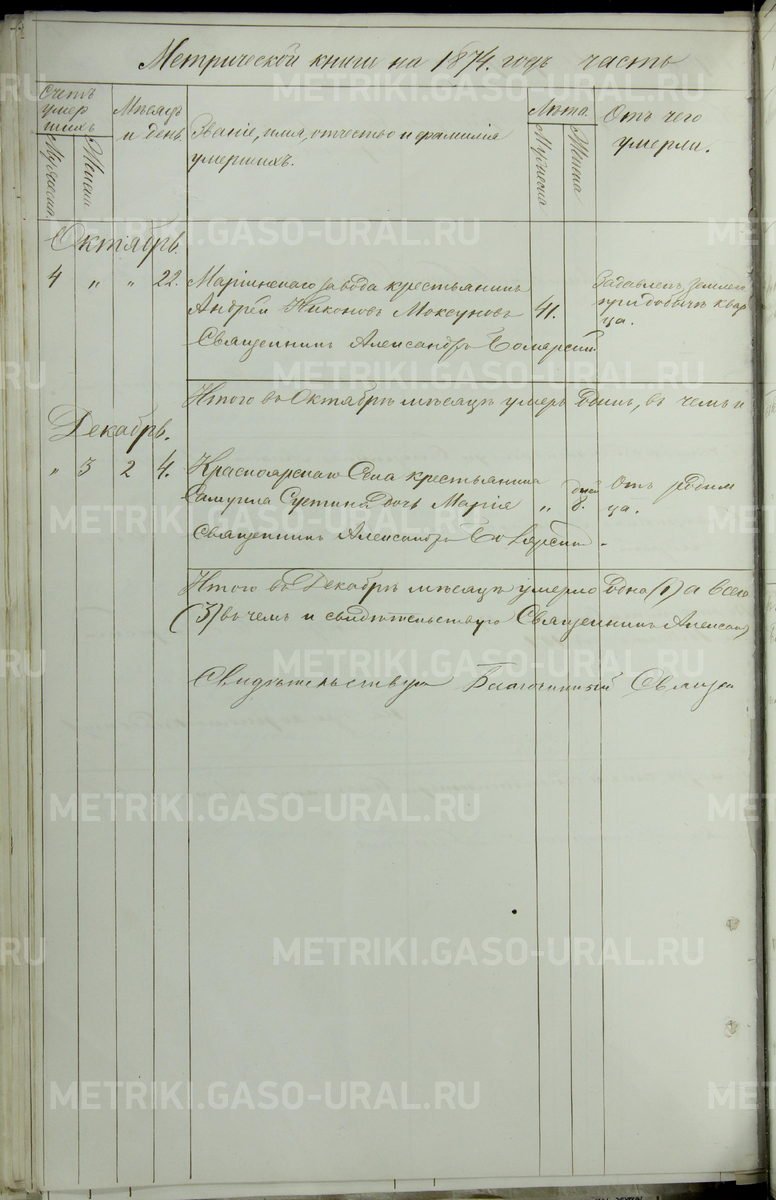 Метрической книги на 1874. годъ часть
Счетъ умер шихъ
Мужеска.
Женска
Мѣсяцъ и день.
Званіе, имя, отчество и фамилія умершихъ.
Лѣта.
Мужеска
Женска
Отъ чего умерли.
Октябрь.
4 „ „ 22. Маріинскаго завода крестьянинъ
Андрей Никоновъ Моксуновъ 41.
Задавленъ землею
при добычѣ квар
ца.
Священникъ Александръ
Итого въ Октябрѣ мѣсяцѣ умеръ одинъ, въ чемъ и
Декабрь.
„ 3 2 4. Красноярскаго Села крестьянина
Самуила Сустина дочь Марія „ дней 8.
Отъ родим
ца.
Священникъ Александръ
Итого въ Декабрѣ мѣсяцѣ умерло одна (1) а всего
(3) въ чемъ и свидѣтельствую Священникъ Алексан
Свидѣтельствую Благочинный Священ
METRIKI.GASO-URAL.RU